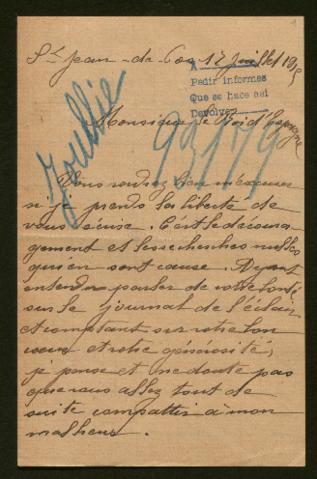 St Jean-de-Coq 17 Juillet 1918
A
Pedir informes
Que se hace asi
Devolver
Monsieur le Roi d'Espagne
Jullie
93179
Vous voudrez bien m'excuser
si je prends la liberté de
vous écrire. C'est le décour
agement et les recherches nulles
qui en sont cause. Ayant
entendre parler de votre bonté
sur le journal de l'éclair
et comptant sur votre bon
cœur et votre générosité,
je pense et ne doute pas
que vous allez tout de
suite compattir à mon
malheur.